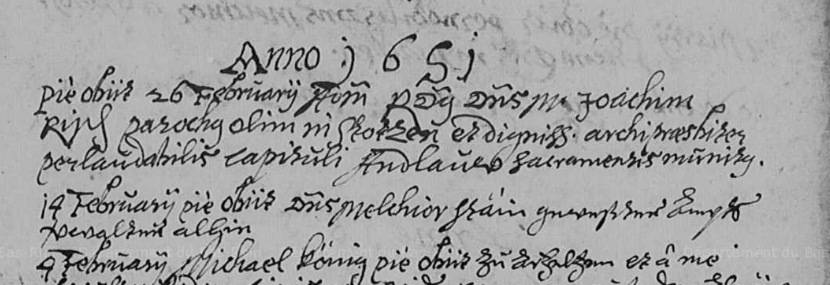 Anno 1651
piè obiit 26 Februarij Adm Rdg Dns M. Joachim
parochg olim in Stotzen et digniss. archipræsbiter
perlaudabilis capituli Andlauen sacramentis munitg.
14 Februarij piè obiit Dns Melchior Stäin gewesster Ampts
verwalter allhin
4 Februarij Michael König piè obiit zu et â me